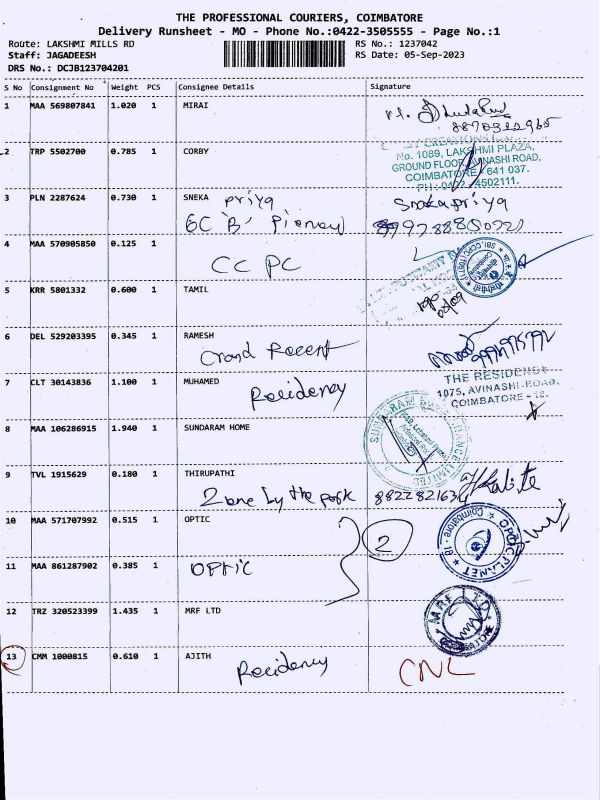 THE PROFESSIONAL COURIERS, COIMBATORE
Delivery Runsheet - MO - Phone No.:0422-3505555 - Page No.:1
Route: LAKSHMI MILLS RD RS No.: 1237042
Staff: JAGADEESH RS Date: 05-Sep-2023
DRS No.: DCJB123704201
S No Consignment No Weight PCS Consignee Details Signature
1 MAA 569807841 1.020 1 MIRAI
8870322965
2 TRP 5502700 0.785 1 CORBY
CREATIONS
No. 1089, LAKSHMI PLAZA,
GROUND FLOOR, AVINASHI ROAD,
COIMBATORE - 641 037.
PH : 0422 - 4502111.
3 PLN 2287624 0.730 1 SNEKA Priya Snekapriya
6C 'B'
4 MAA 570905850 0.125 1
CC PC
5 KRR 5801332 0.600 1 TAMIL
6 DEL 529203395 0.345 1 RAMESH
Grand Recent
7 CLT 30143836 1.100 1 MUHAMED
Recidency
THE RESIDENCY
1075, AVINASHI ROAD,
COIMBATORE - 18.
8 MAA 106286915 1.940 1 SUNDARAM HOME
9 TVL 1915629 0.180 1 THIRUPATHI
Zone by the park
10 MAA 571707992 0.515 1 OPTIC
2
OPTIC PLANET
Coimbatore - 18
11 MAA 861287902 0.385 1 OPTIC
12 TRZ 320523399 1.435 1 MRF LTD
MRF LTD
13 CMM 1000815 0.610 1 AJITH
Recidency CNL